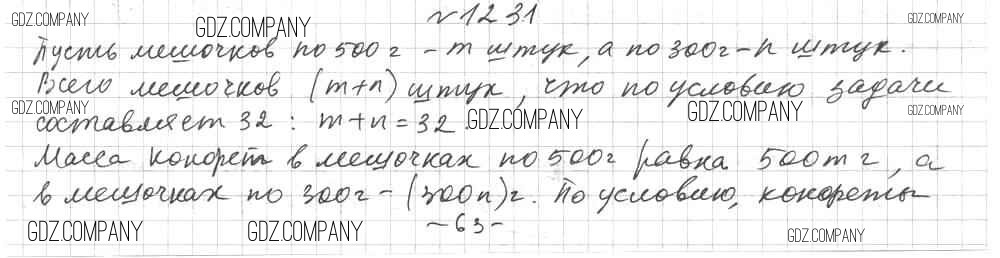 GDZ.COMPANY GDZ.COMPANY № 1231 GDZ.COMPANY GDZ.COMPANY
Пусть мешочков по 500 г – m штук, а по 300г – n штук.
Всего мешочков (m+n) штук, что по условию задачи
GDZ.COMPANY GDZ.COMPANY GDZ.COMPANY GDZ.COMPANY GDZ.COMPANY
составляет 32 : m+n = 32.
Масса конфет в мешочках по 500г равна 500m г, а
в мешочках по 300г – (300n)г. По условию, конфеты
– 63 –
GDZ.COMPANY GDZ.COMPANY GDZ.COMPANY